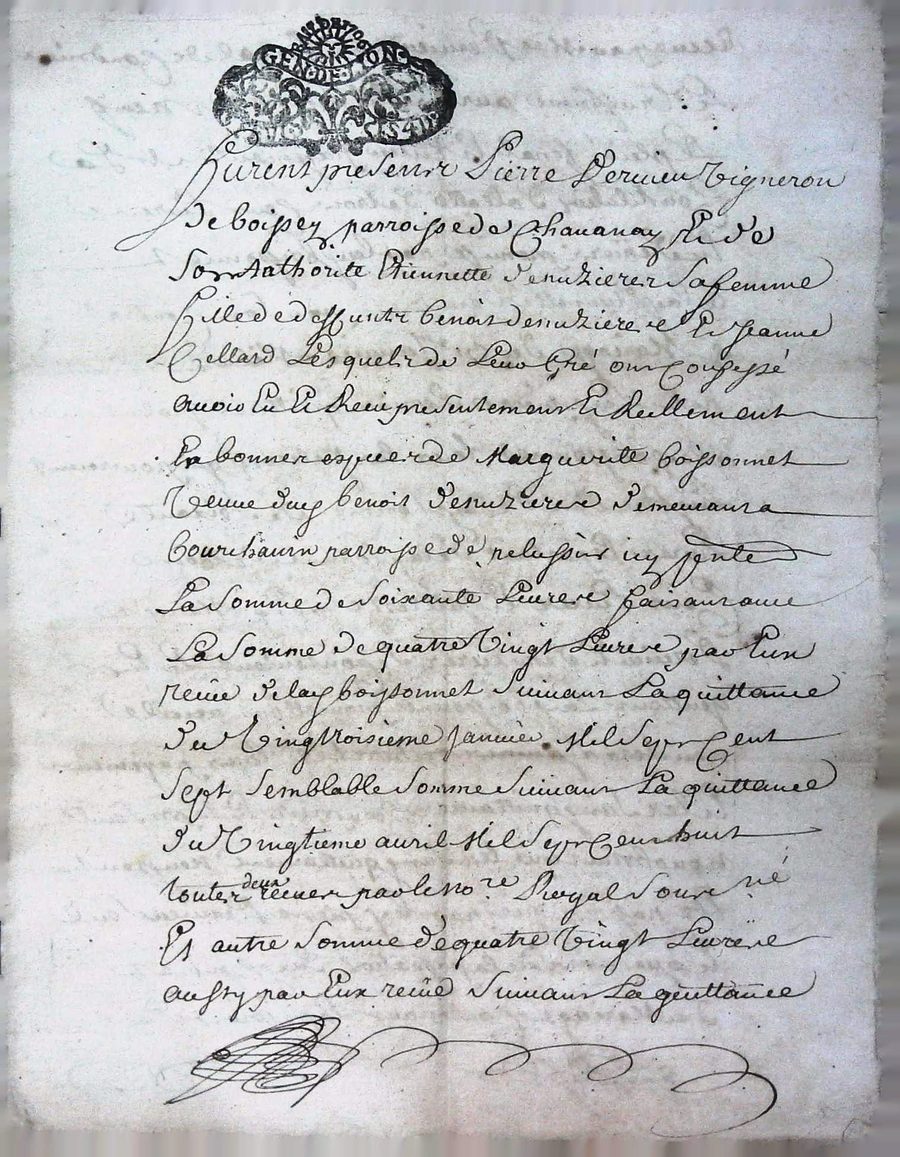 GEN·DE·LION
Furent presents Pierre Dervieu Vigneron
de boissey parroisse de Chavanay Et de
Son Authorité Etiennette denuzieres Sa femme
fille de deffunts benoit denuziere Et Jeanne
Cellard Lesquels de Leur Gré ont Confessé
avoir Eu Et Receu presentement Et Reellement
En bonnes espices de Marguerite boissonnet
Veuve dud benoit denuziere demeurant a
bourchanin parroisse de pelussin icy pnte
La Somme de Soixante Livres faisant avec
La Somme de quatre Vingt Livres par Eux
receue de lad boissonnet Suivant La quittance
du Vingtroisieme Janvier Mil Sept Cent
Sept Semblable Somme Suivant La quittance
du Vingtieme avril Mil Sept Cent huit
toutes deux receues par le no.re Royal Sous.né
Et autre Somme de quatre Vingt Livres
aussy par Eux receüe Suivant La quittance